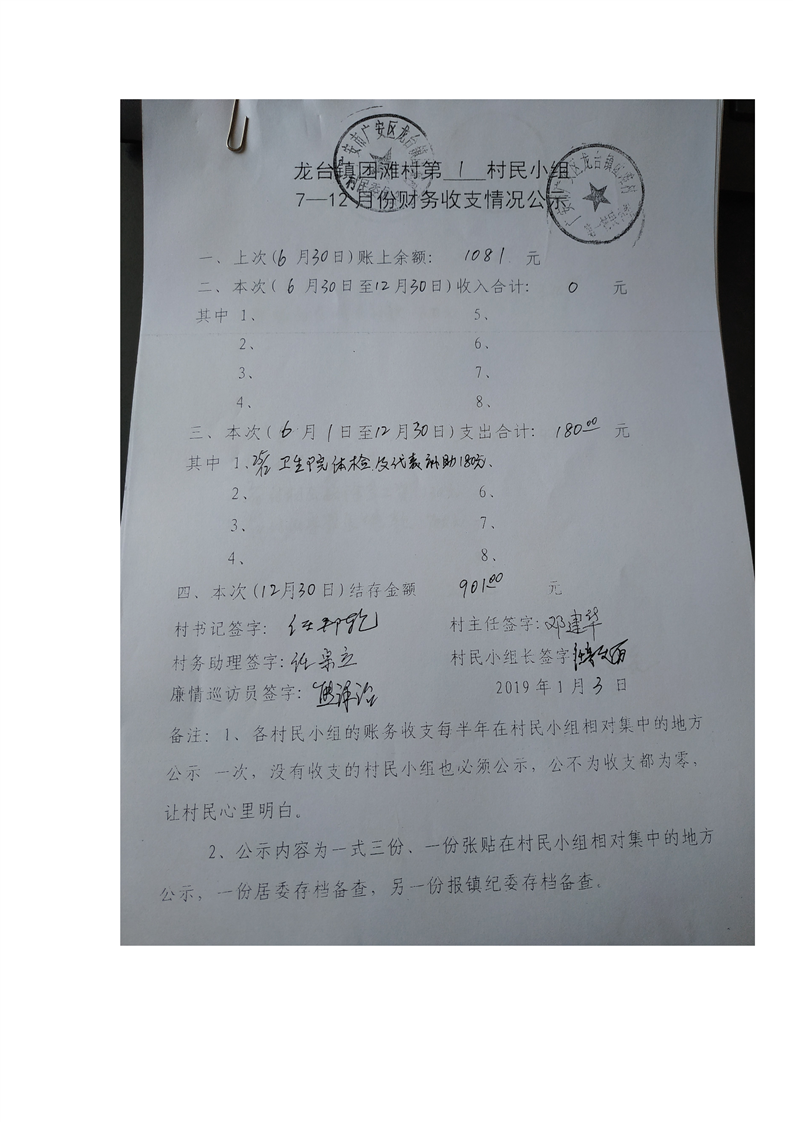 龙台镇团滩村第 1 村民小组
7—12月份财务收支情况公示
一、上次(6 月30日)账上余额: 1081 元
二、本次( 6 月30日至12月30日)收入合计: 0 元
其中 1、 5、
2、 6、
3、 7、
4、 8、
三、本次( 6 月 1 日至12月30日)支出合计: 180.00 元
其中 1、 卫生院体检及代表补助180元、
2、 6、
3、 7、
4、 8、
四、本次(12月30日)结存金额 901.00 元
村书记签字: 村主任签字:邓建华
村务助理签字: 村民小组长签字
廉情巡访员签字: 2019年1月 3 日
备注: 1、各村民小组的账务收支每半年在村民小组相对集中的地方
公示 一次,没有收支的村民小组也必须公示,公不为收支都为零,
让村民心里明白。
2、公示内容为一式三份、一份张贴在村民小组相对集中的地方
公示,一份居委存档备查,另一份报镇纪委存档备查。